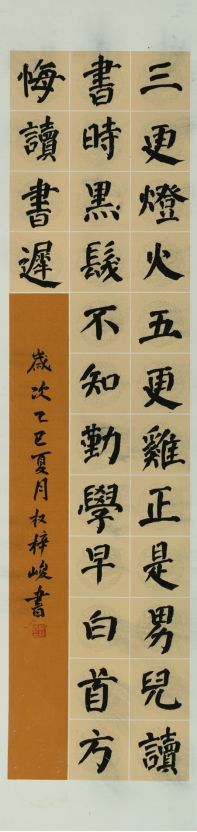 三更燈火五更雞正是男兒讀
書時黑髮不知勤學早白首方
悔讀書遲
歲次乙巳夏月权梓峻書